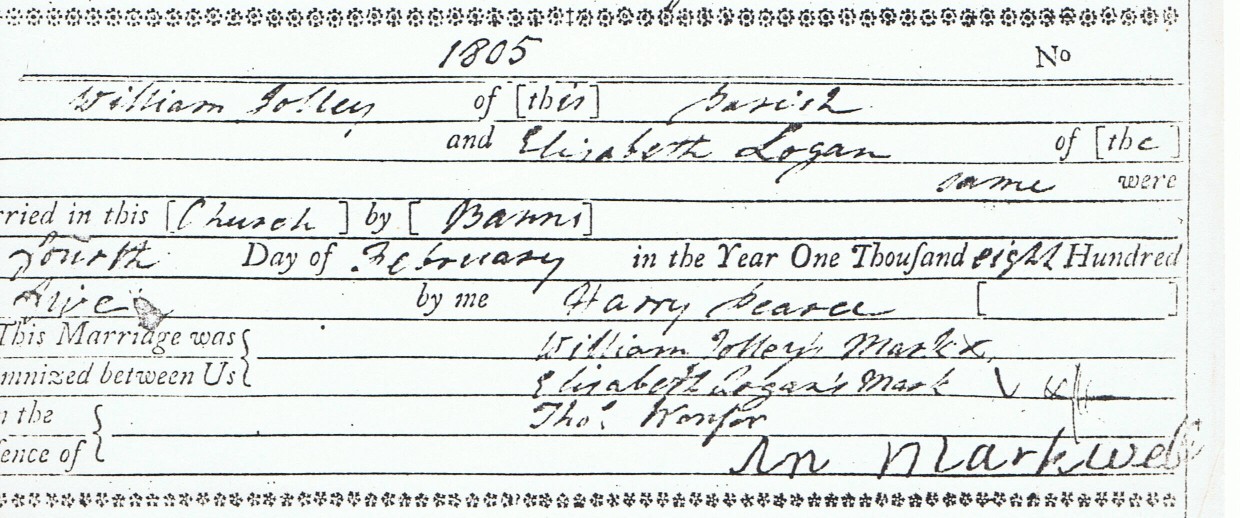 1805 No
William Jolley of [this] parish
and Elizabeth Logan of [the]
same were
rried in this [Church] by [Banns]
fourth Day of February in the Year One Thouſand eight Hundred
five by me Harry Pearce [ ]
This Marriage was William Jolley's Mark x,
mnized between Us Elizabeth Logan's Mark
n the Thos. Wonfor
ence of Ann Markwell